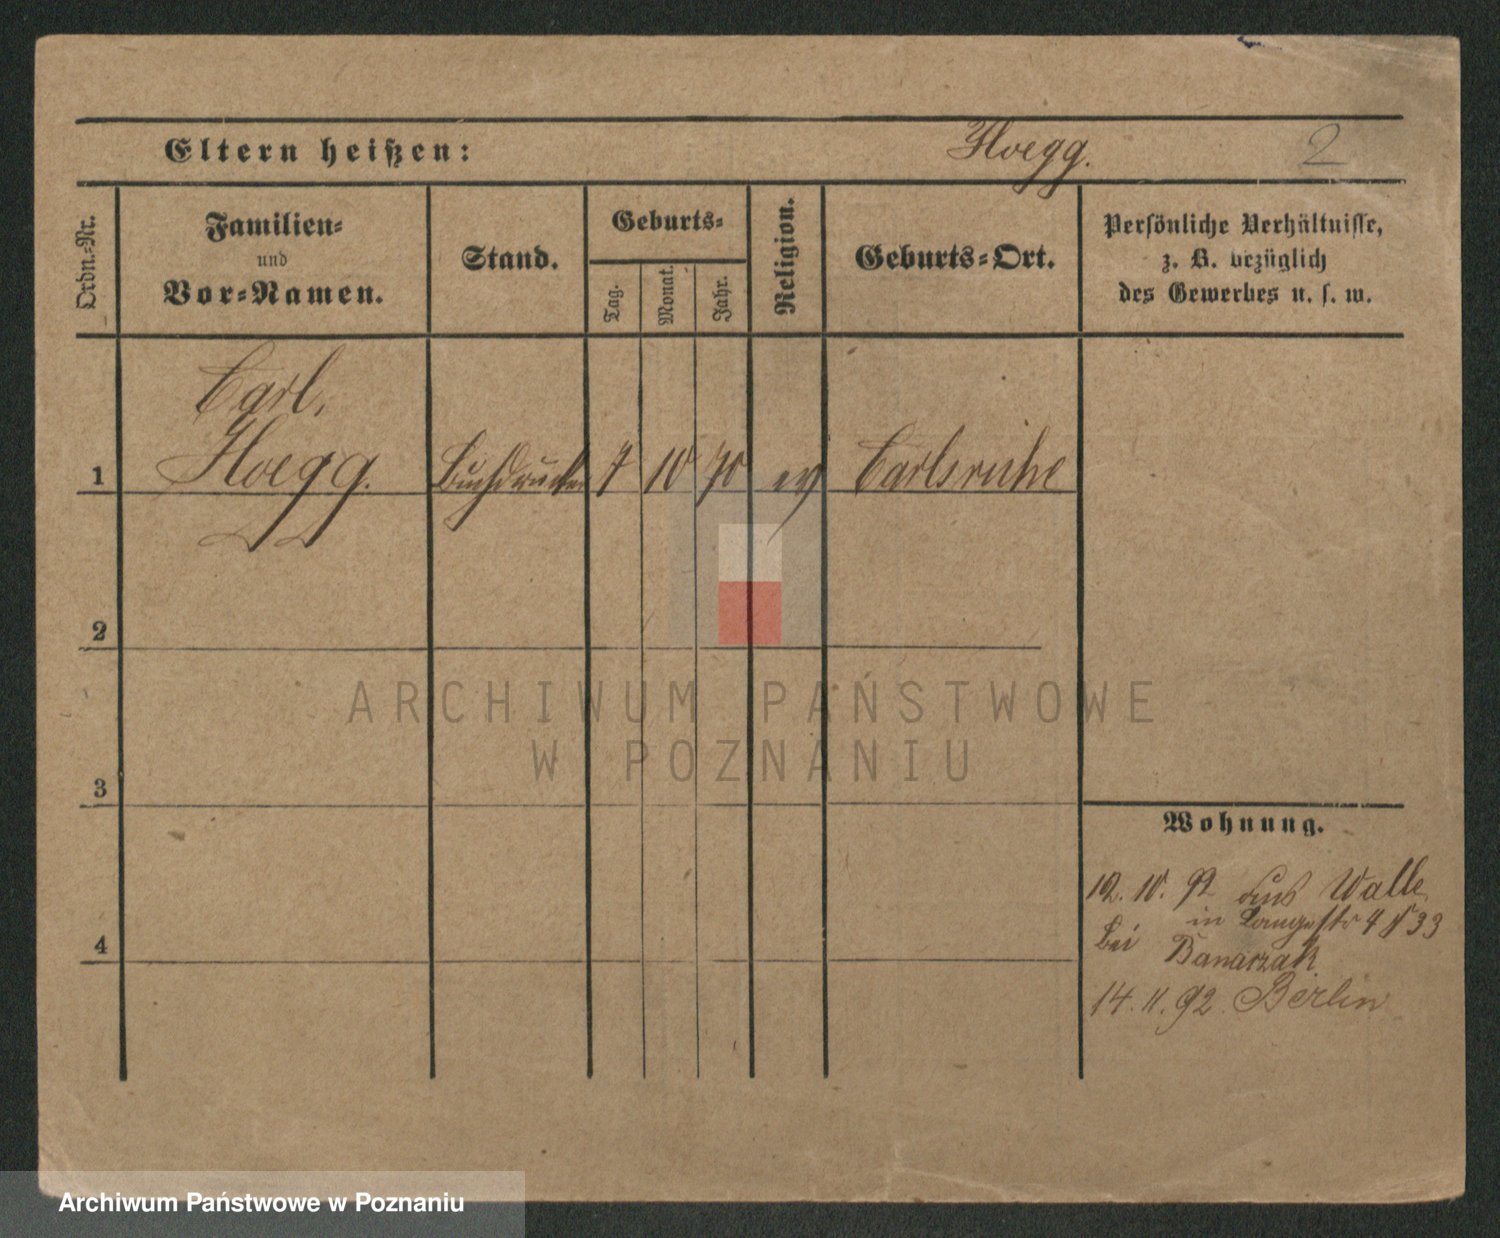 Eltern heißen: Hoegg. 2
Ordn.-Nr.
Familien-
und
Vor-Namen.
Stand.
Geburts-
Tag.
Monat.
Jahr.
Religion.
Geburts-Ort.
Persönliche Verhältnisse,
z. B. bezüglich
des Gewerbes u. s. w.
Carl,
1 Hoegg. Buchdrucker 7 10 70 ev Carlsruhe
2
ARCHIWUM PAŃSTWOWE
W POZNANIU
3
Wohnung.
12. 10. 92 aus Walle
in Langestr 4 33
bei Banaszak
4
14. 11. 92. Berlin
Archiwum Państwowe w Poznaniu